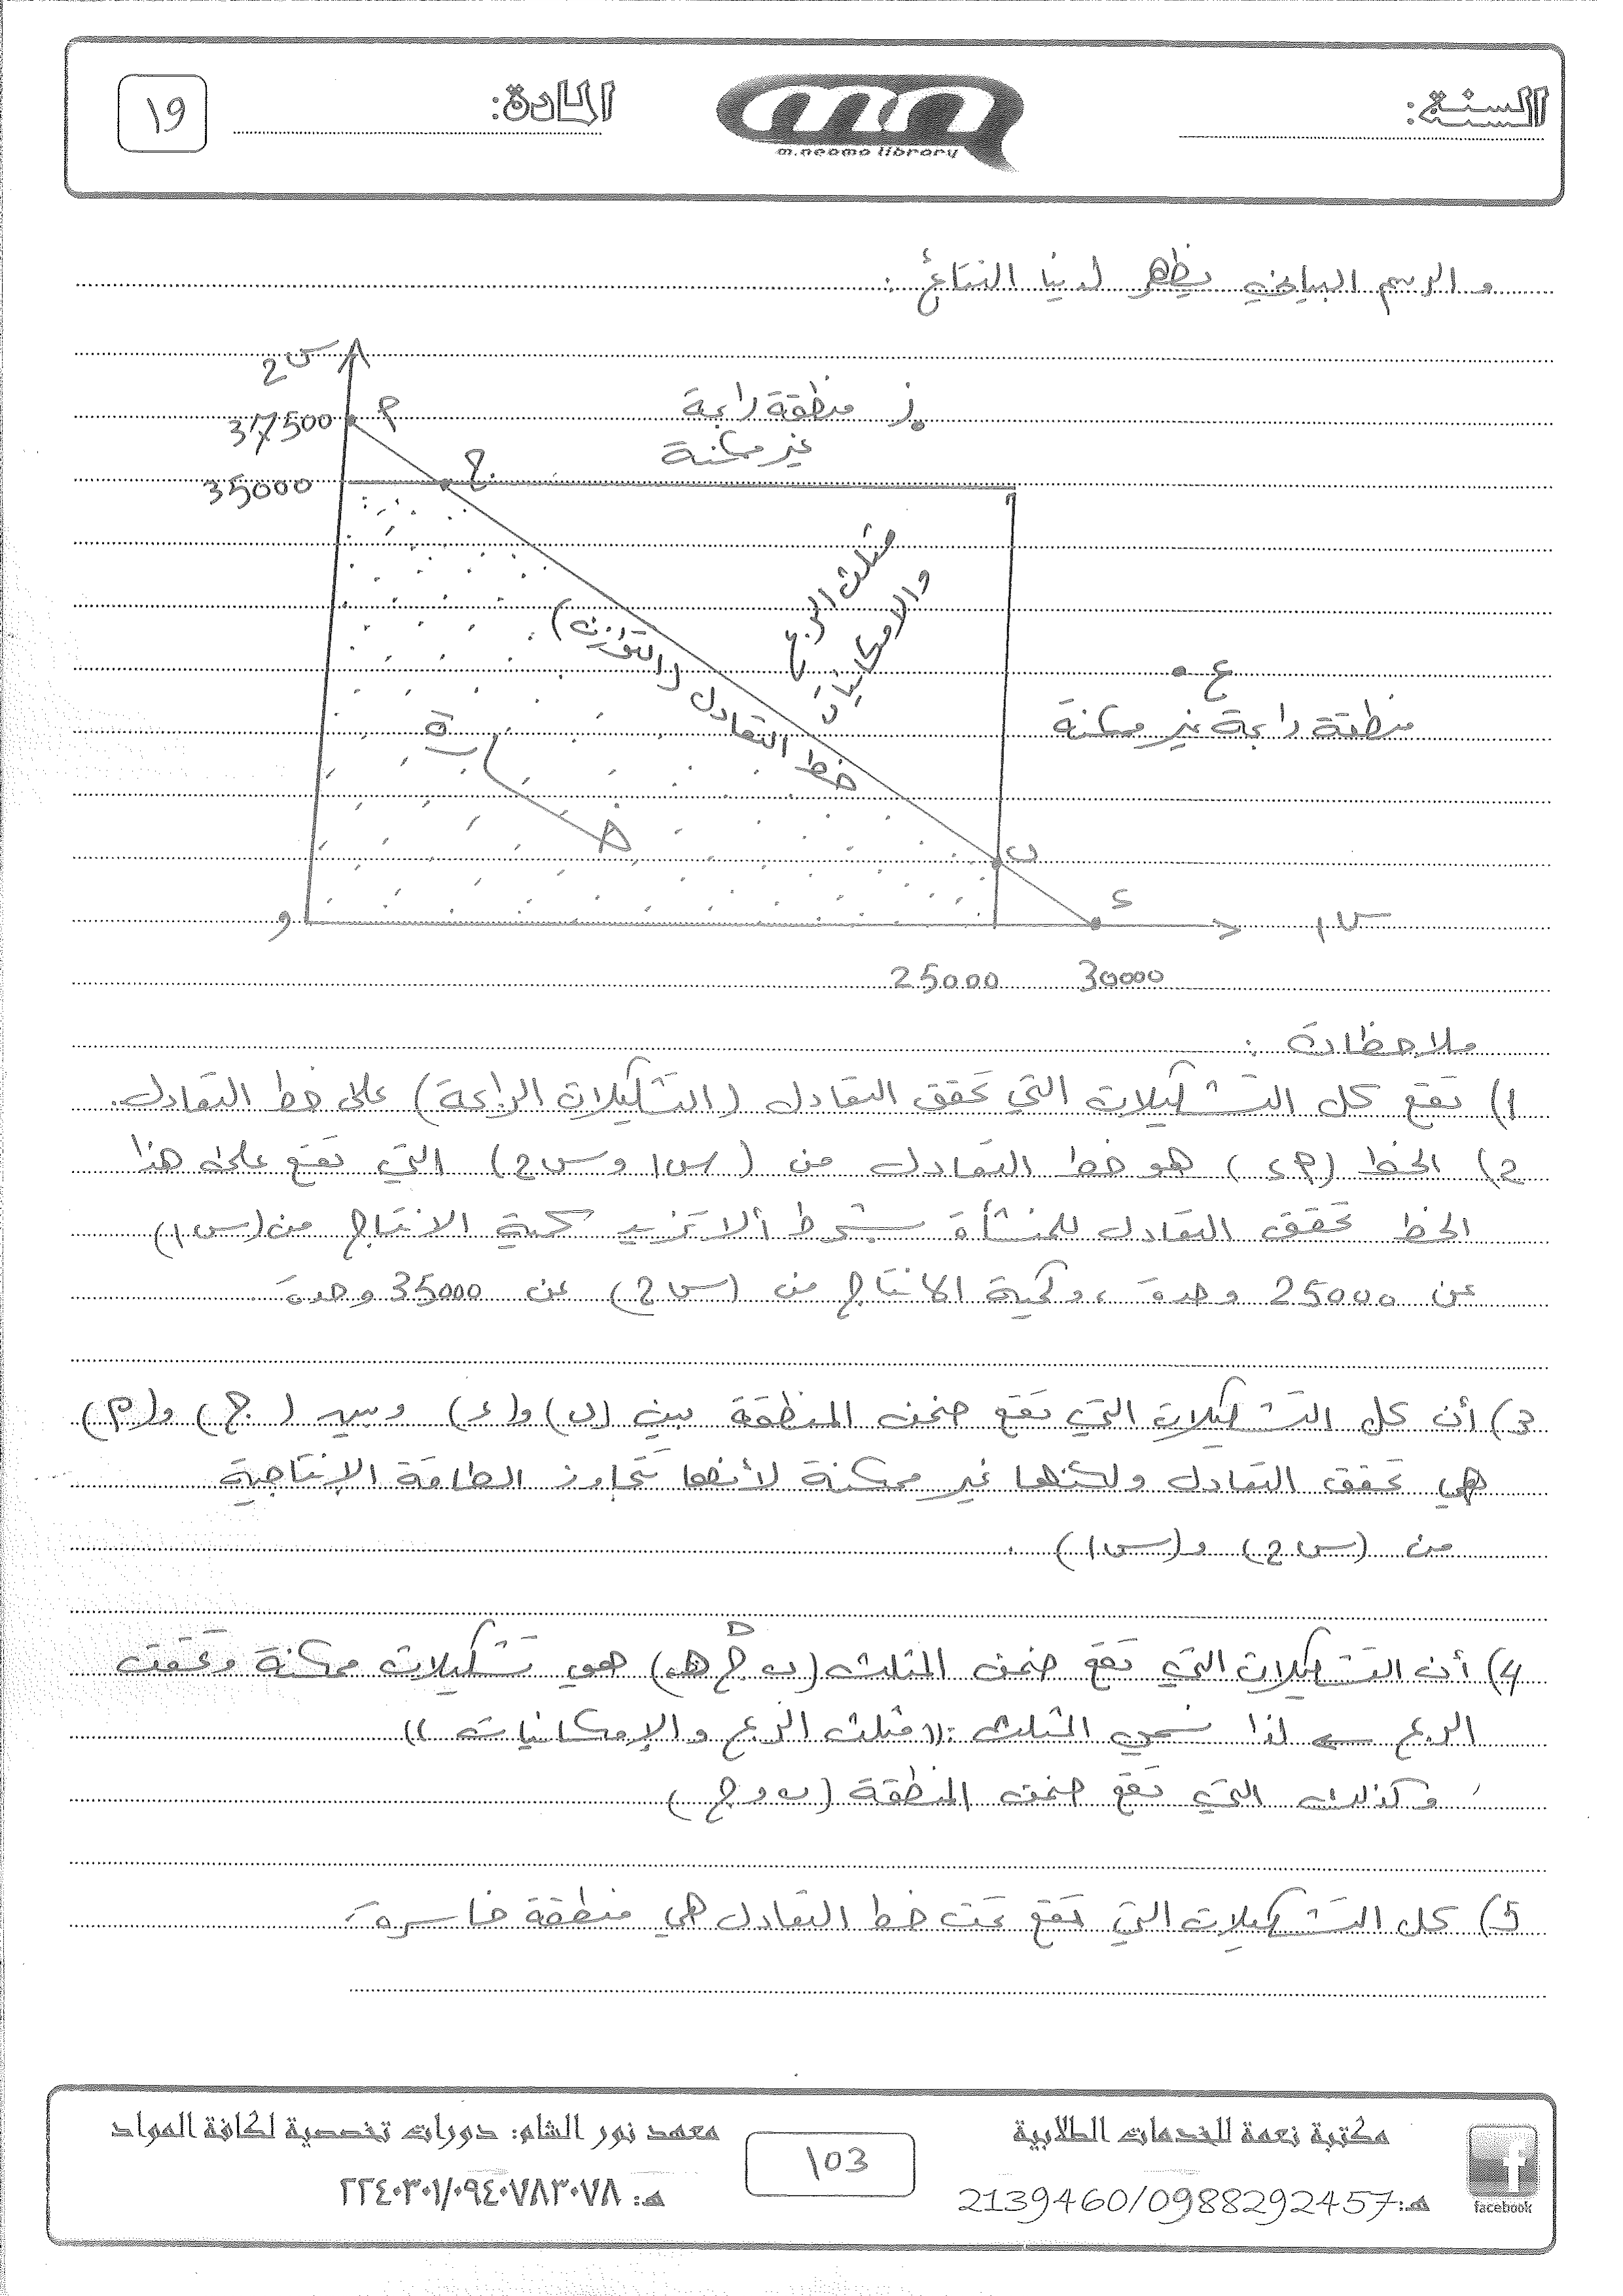 السنة:
m.neama library
المادة:
١٩
و الرسم البياني يظهر لدينا النتائج :
س2
37500
م
ز منطقة رابحة
غير ممكنة
35000
ج
مثلث الربح
والامكانيات
خط التعادل (التوازن)
ع
منطقة رابحة غير ممكنة
خاسرة
ن
د
و
س1
25000
30000
ملاحظات :
1) تقع كل التشكيلات التي تحقق التعادل (التشكيلات الرابحة) على خط التعادل.
2) الخط (م د) هو خط التعادل من (س1 وس2) التي تقع على هذا
الخط تحقق التعادل للمنشأة بشرط ألا تزيد كمية الانتاج من (س1)
عن 25000 وحدة ، وكمية الانتاج من (س2) عن 35000 وحدة
3) أن كل التشكيلات التي تقع ضمن المنطقة بين (ن) و(د) وبين (ج) و(م)
هي تحقق التعادل ولكنها غير ممكنة لأنها تتجاوز الطاقة الإنتاجية
من (س2) و(س1) .
4) أن التشكيلات التي تقع ضمن المثلث (ن ج هـ) هي تشكيلات ممكنة وتحقق
الربح ← لذا نسمي المثلث : "مثلث الربح والإمكانيات"
وكذلك التي تقع ضمن المنطقة (ن و ج)
5) كل التشكيلات التي تقع تحت خط التعادل هي منطقة خاسرة
مكتبة نعمة للخدمات الطلابية
هـ: 2139460/0988292457
facebook
103
معهد نور الشام: دورات تخصصية لكافة المواد
هـ: ٢٢٤٠٣٠١/٠٩٤٠٧٨٣٠٧٨